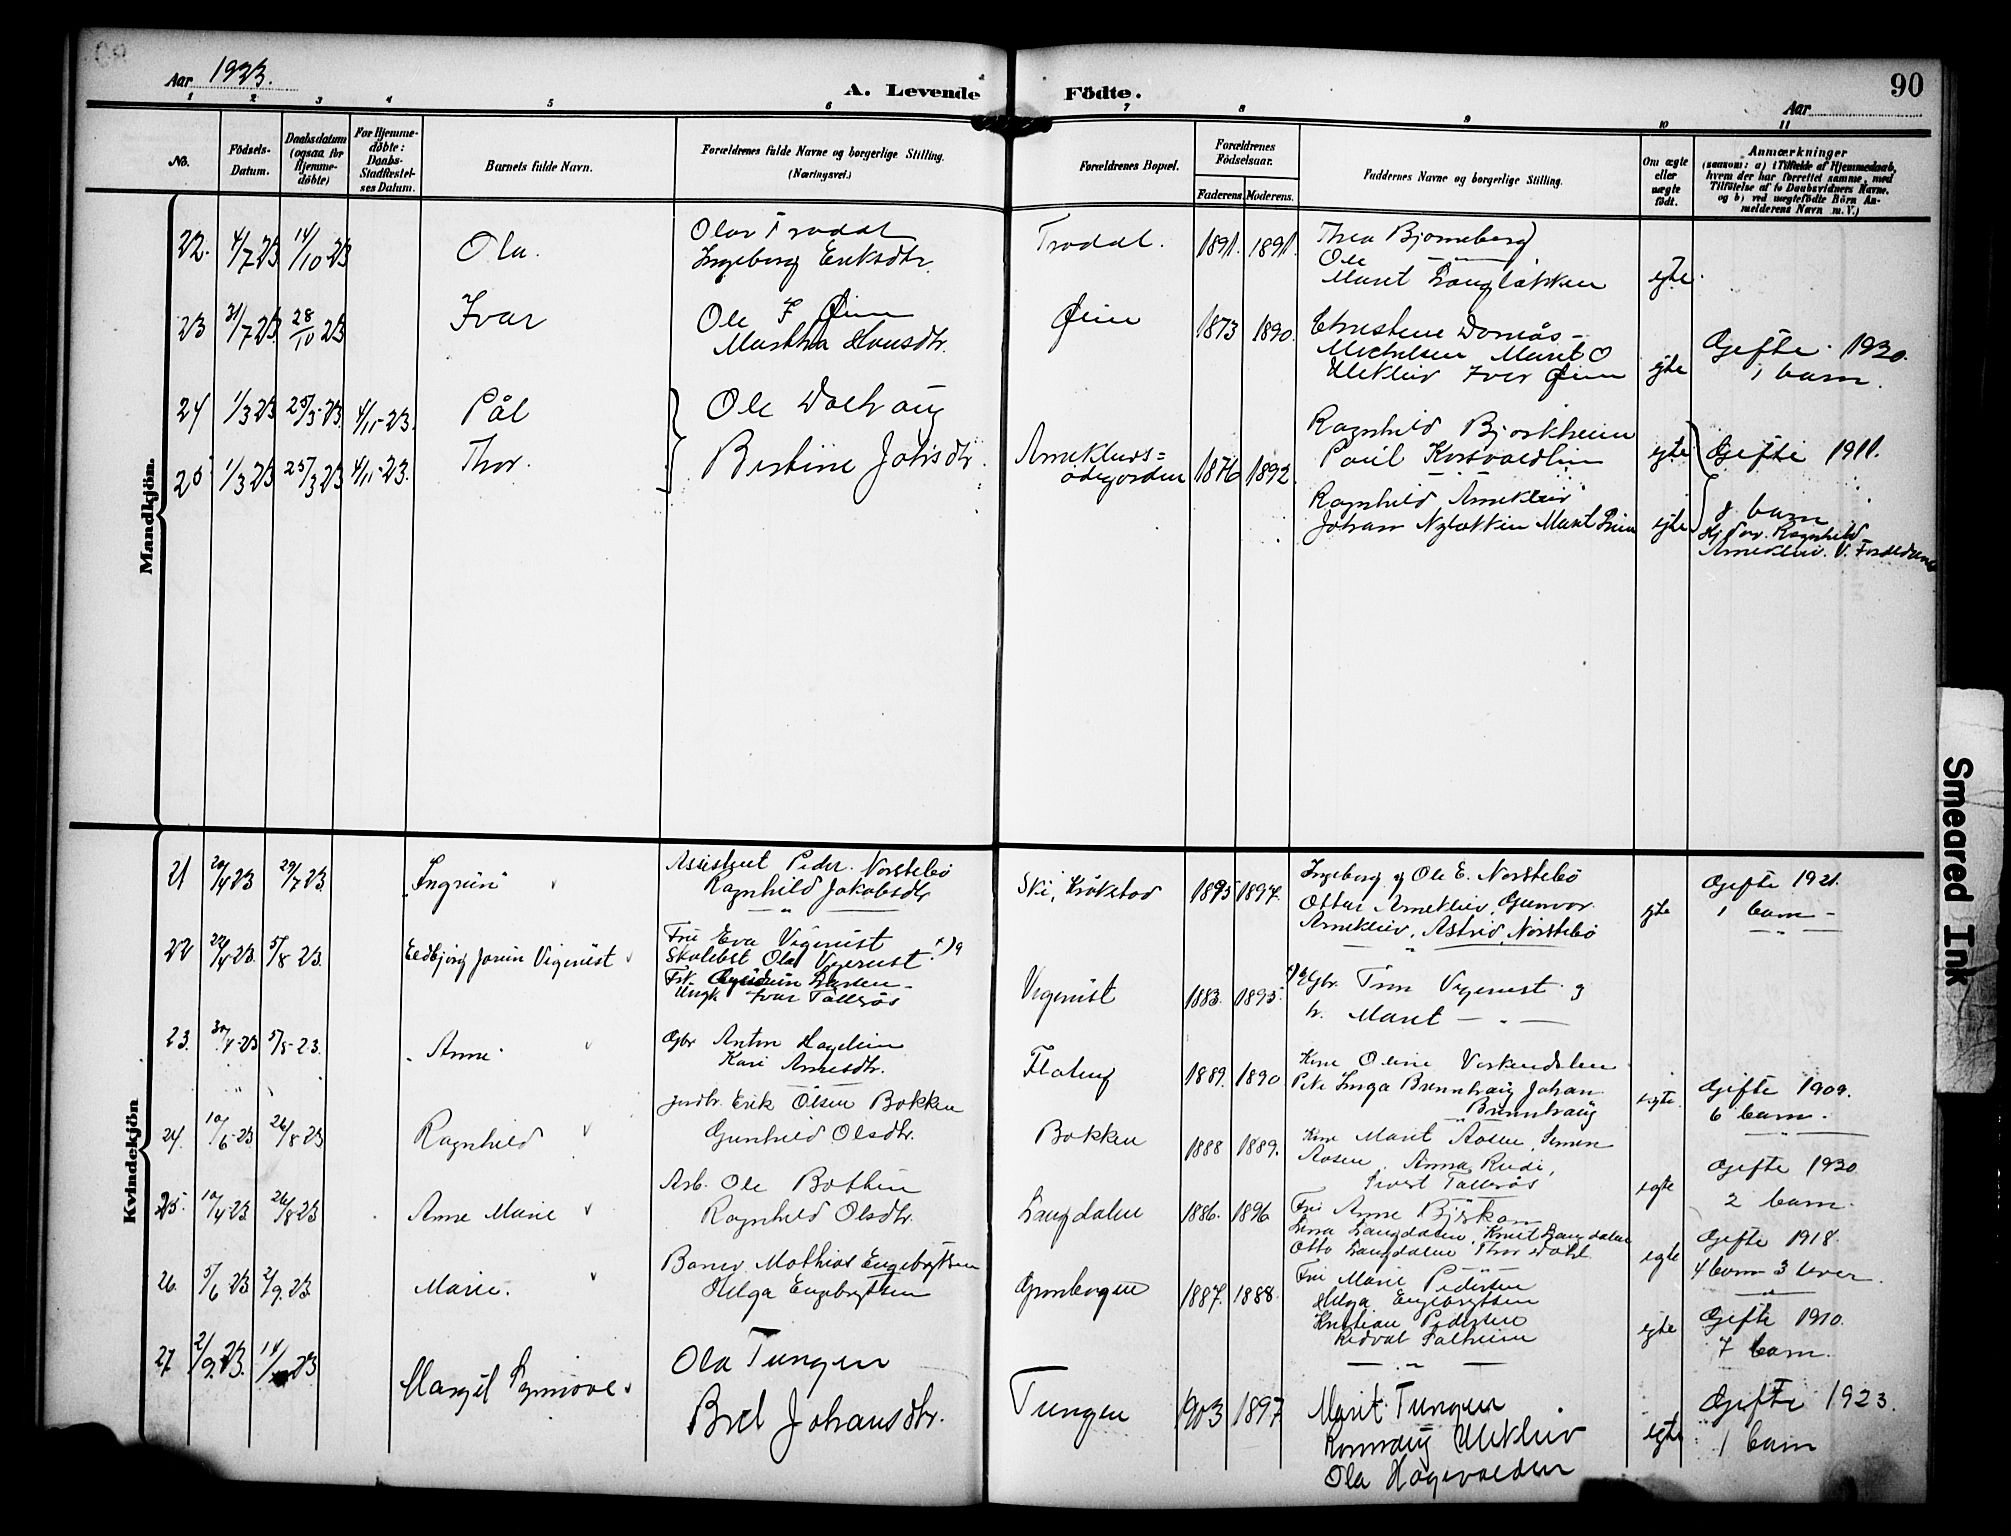 Aar 1923.
A. Levende Födte.
90
Aar
1 2 3 4 5 6 7 8 9 10 11
No.
Födsels-Datum.
Daabsdatum (ogsaa for Hjemme-döbte)
For Hjemme-döbte: Daabs-Stadfæstel-ses Datum.
Barnets fulde Navn.
Forældrenes fulde Navne og borgerlige Stilling. (Næringsvei.)
Forældrenes Bopæl.
Forældrenes Födselsaar.
Faderens. Moderens.
Faddernes Navne og borgerlige Stilling.
Om ægte eller uægte födt.
Anmærkninger
(saasom: a) i Tilfælde af Hjemmedaab, hvem der har forrettet samme, med Tilföielse af to Daabsvidners Navne, og b) ved uægtefödte Börn An-melderens Navn m. V.)
Mandkjön.
22. 4/7 23 14/10 23 Ola.
Olav Trodal
Ingeborg Eriksdtr.
Trodal. 1891. 1891.
Thea Bjorneberg
Ole — " —
Marit Langløkken
egte.
23 31/7 23 28/10 23 Ivar
Ole I Øien
Martha Hansdtr.
Øien 1873 1890.
Christine Dornås -
Michelsen Marit O
Ulekleiv Iver Øien
egte
Gifte 1920.
1 barn.
24 1/3 23 25/3-23. 4/11-23. Pål
Ole Dalhaug
25 1/3 23 25/3 23 4/11-23. Thor.
Bertine Johsdtr.
Arneklevs=
ødegorden 1876 1892.
Ragnhild Bjorkheim
Paul Korsvoldlien
egte
Gifte 1911.
Ragnhild Arnekleiv
Johan Nyløkken Marit Øien
egte
8 barn
Hj döv. Ragnhild
Arnekleiv. V. Forældrene
Kvindekjön
21 20/4 23 29/7 23 Ingrun
Assistent Peder Norstebø
Ragnhild Jakobsdtr
— " —
Ski, Kråkstad 1895 1897.
Ingeborg og Ole E. Norstebø
Ottar Arnekleiv, Gunvor
Arnekleiv, Astrid Norstebø
— " —
egte
Gifte 1921.
1 barn -
— " —
22 22/4 23. 5/8 23. Eldbjörg Jorun Vigerust
Fru Eva Vigerust
Skolebst Ola Vigerust x)
Larsen -
Ungk Ivar Tallerås
Vigerust 1883. 1895.
Gbr. Tron Vigerust og
h. Marit — " —
23. 30/4-23 5/8-23. Anne
Gbr Anton Hageleien
Kari Arnesdtr.
Flatug 1889. 1890
Kone Oline Veskendalen
Pike Inga Brennhaug Johan
Brennhaug
egte.
Gifte 1909.
6 barn.
— " —
24. 10/6-23 26/8-23 Ragnhild
Jordbr. Erik Olsen Bakken
Gunhild Olsdtr.
Bakken 1888 1889.
Kone Marit Aasen, Simen
Aasen, Anna Rudi,
Sivert Tallerås
egte
Gifte 1920
2 barn.
25. 10/4 23 26/8 23 Anne Marie
Arb. Ole Bothen
Ragnhild Olsdtr.
Langdalen 1886. 1896
Fru Anne Björkan
Lena Langdalen, Knut Langdalen
Otto Langdalen Thor Dahl
— " —
egte
Gifte 1918.
4 barn 3 lever.
— " —
26. 5/6 23 2/9. 23 Marie.
Banev. Mathias Engebrigtsen
Helga Engebrigtsen
Grønbogen 1887. 1888.
Fru Marie Pedersen
Helga Engebrigtsen
Kristian Pedersen
Reidvat Solheim
— " —
egte
Gifte 1910.
7 barn.
27 2/9. 23. 14/10 23 Margit Synnøve
Ola Tungen
Brit Johansdtr.
Tungen 1903 1897
Marit Tungen
Ronnaug Ulekleiv
Ola Hagevolden
egte
Gifte 1923.
1 barn
Smeared Ink